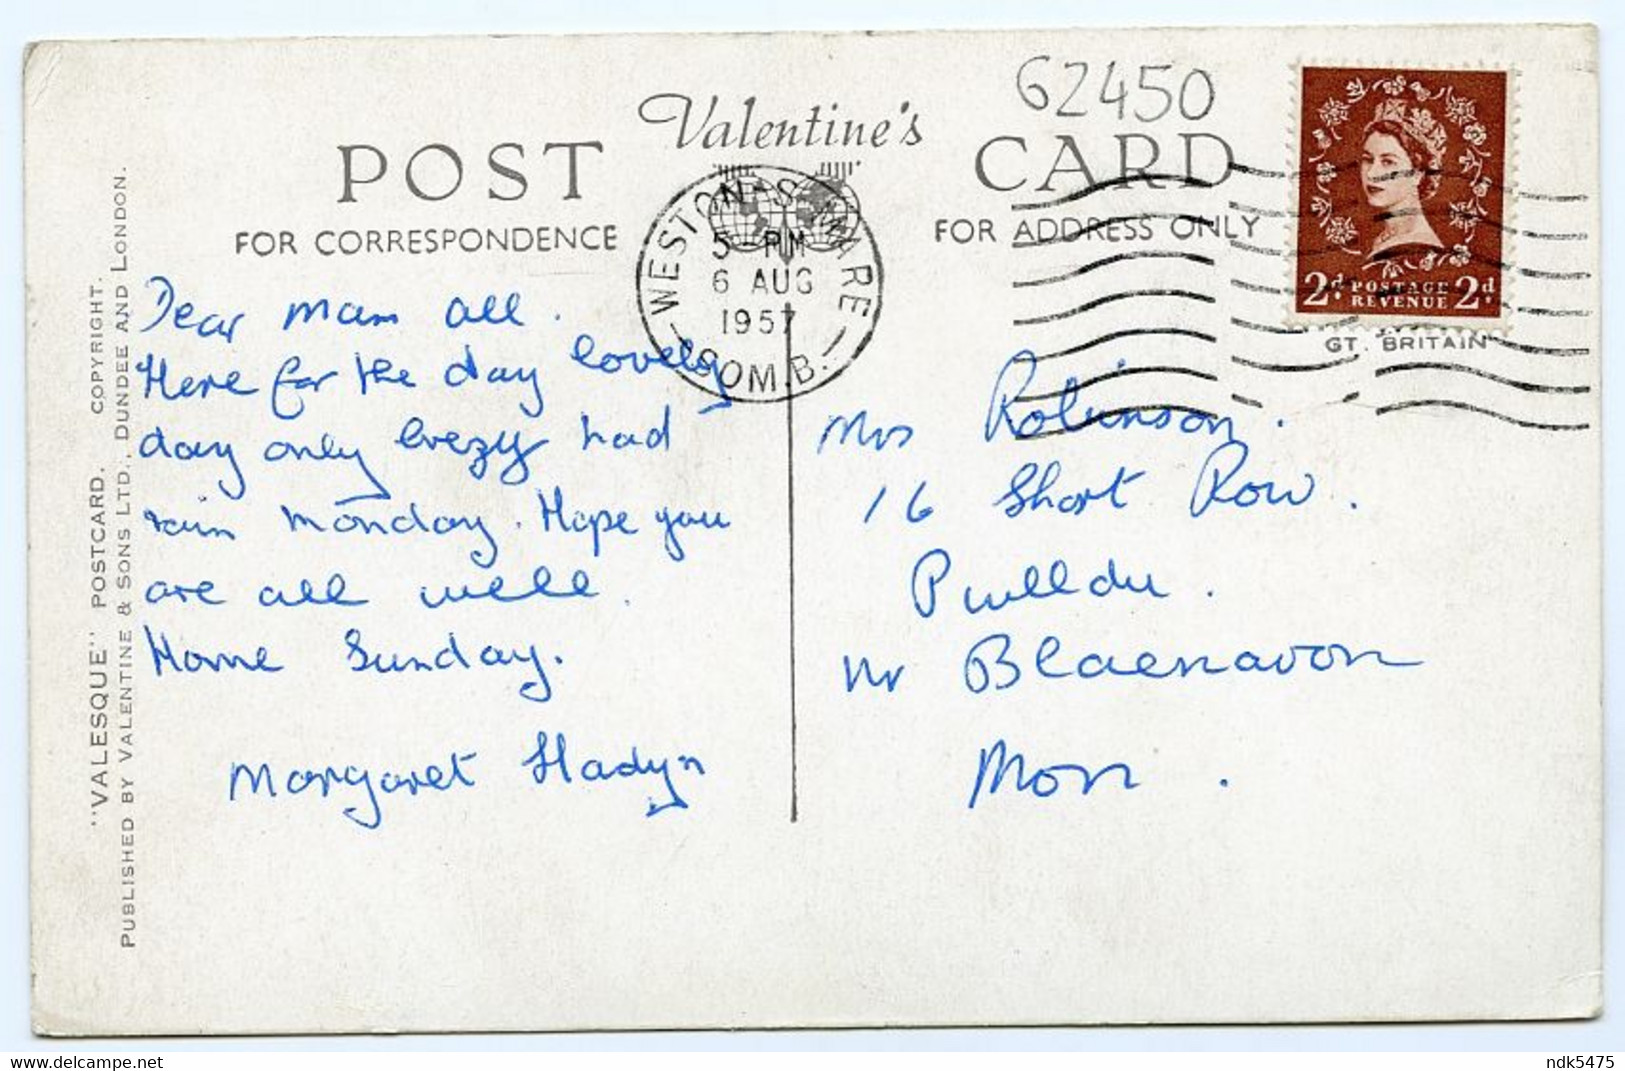 62450
POST
Valentine's
CARD
FOR CORRESPONDENCE
FOR ADDRESS ONLY
WESTON-S-MARE
5-PM
6 AUG
1957
SOM.B.
2d POSTAGE REVENUE 2d
GT. BRITAIN
Dear Mam all.
Here for the day lovely
day only brezy had
rain Monday. Hope you
are all well.
Home Sunday.
Margaret Hadyn
Mrs Robinson.
16 Short Row.
Pwlldu.
Nr Blaenavon
Mon.
"VALESQUE" POSTCARD. COPYRIGHT.
PUBLISHED BY VALENTINE & SONS LTD., DUNDEE AND LONDON.
https://www.delcampe.net
ndk5475